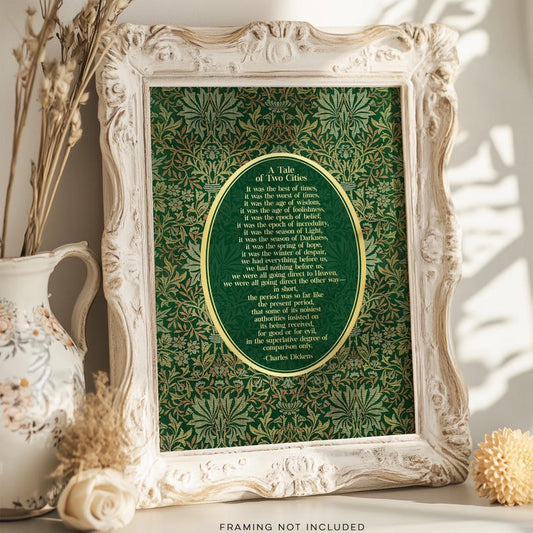 A Tale
of Two Cities
It was the best of times,
it was the worst of times,
it was the age of wisdom,
it was the age of foolishness,
it was the epoch of belief,
it was the epoch of incredulity,
it was the season of Light,
it was the season of Darkness,
it was the spring of hope,
it was the winter of despair,
we had everything before us,
we had nothing before us,
we were all going direct to Heaven,
we were all going direct the other way—
in short,
the period was so far like
the present period,
that some of its noisiest
authorities insisted on
its being received,
for good or for evil,
in the superlative degree of
comparison only.
-Charles Dickens
FRAMING NOT INCLUDED